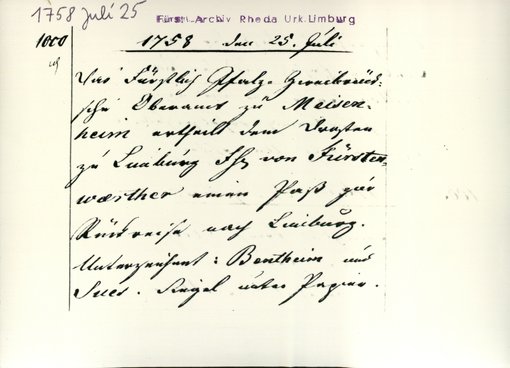 1758 Juli 25
Fürstl. Archiv Rheda Urk. Limburg
1000
1758 den 25. Juli
Das Fürstlich Pfalz-Zweibrück-
sche Oberamt zu Meisen-
heim ertheilt dem Drosten
zu Limburg Fhr von Fürsten-
wærther einen Paß zur
Rückreise nach Limburg.
Unterzeichnet: Bentheim und
Siegel unter Papier.